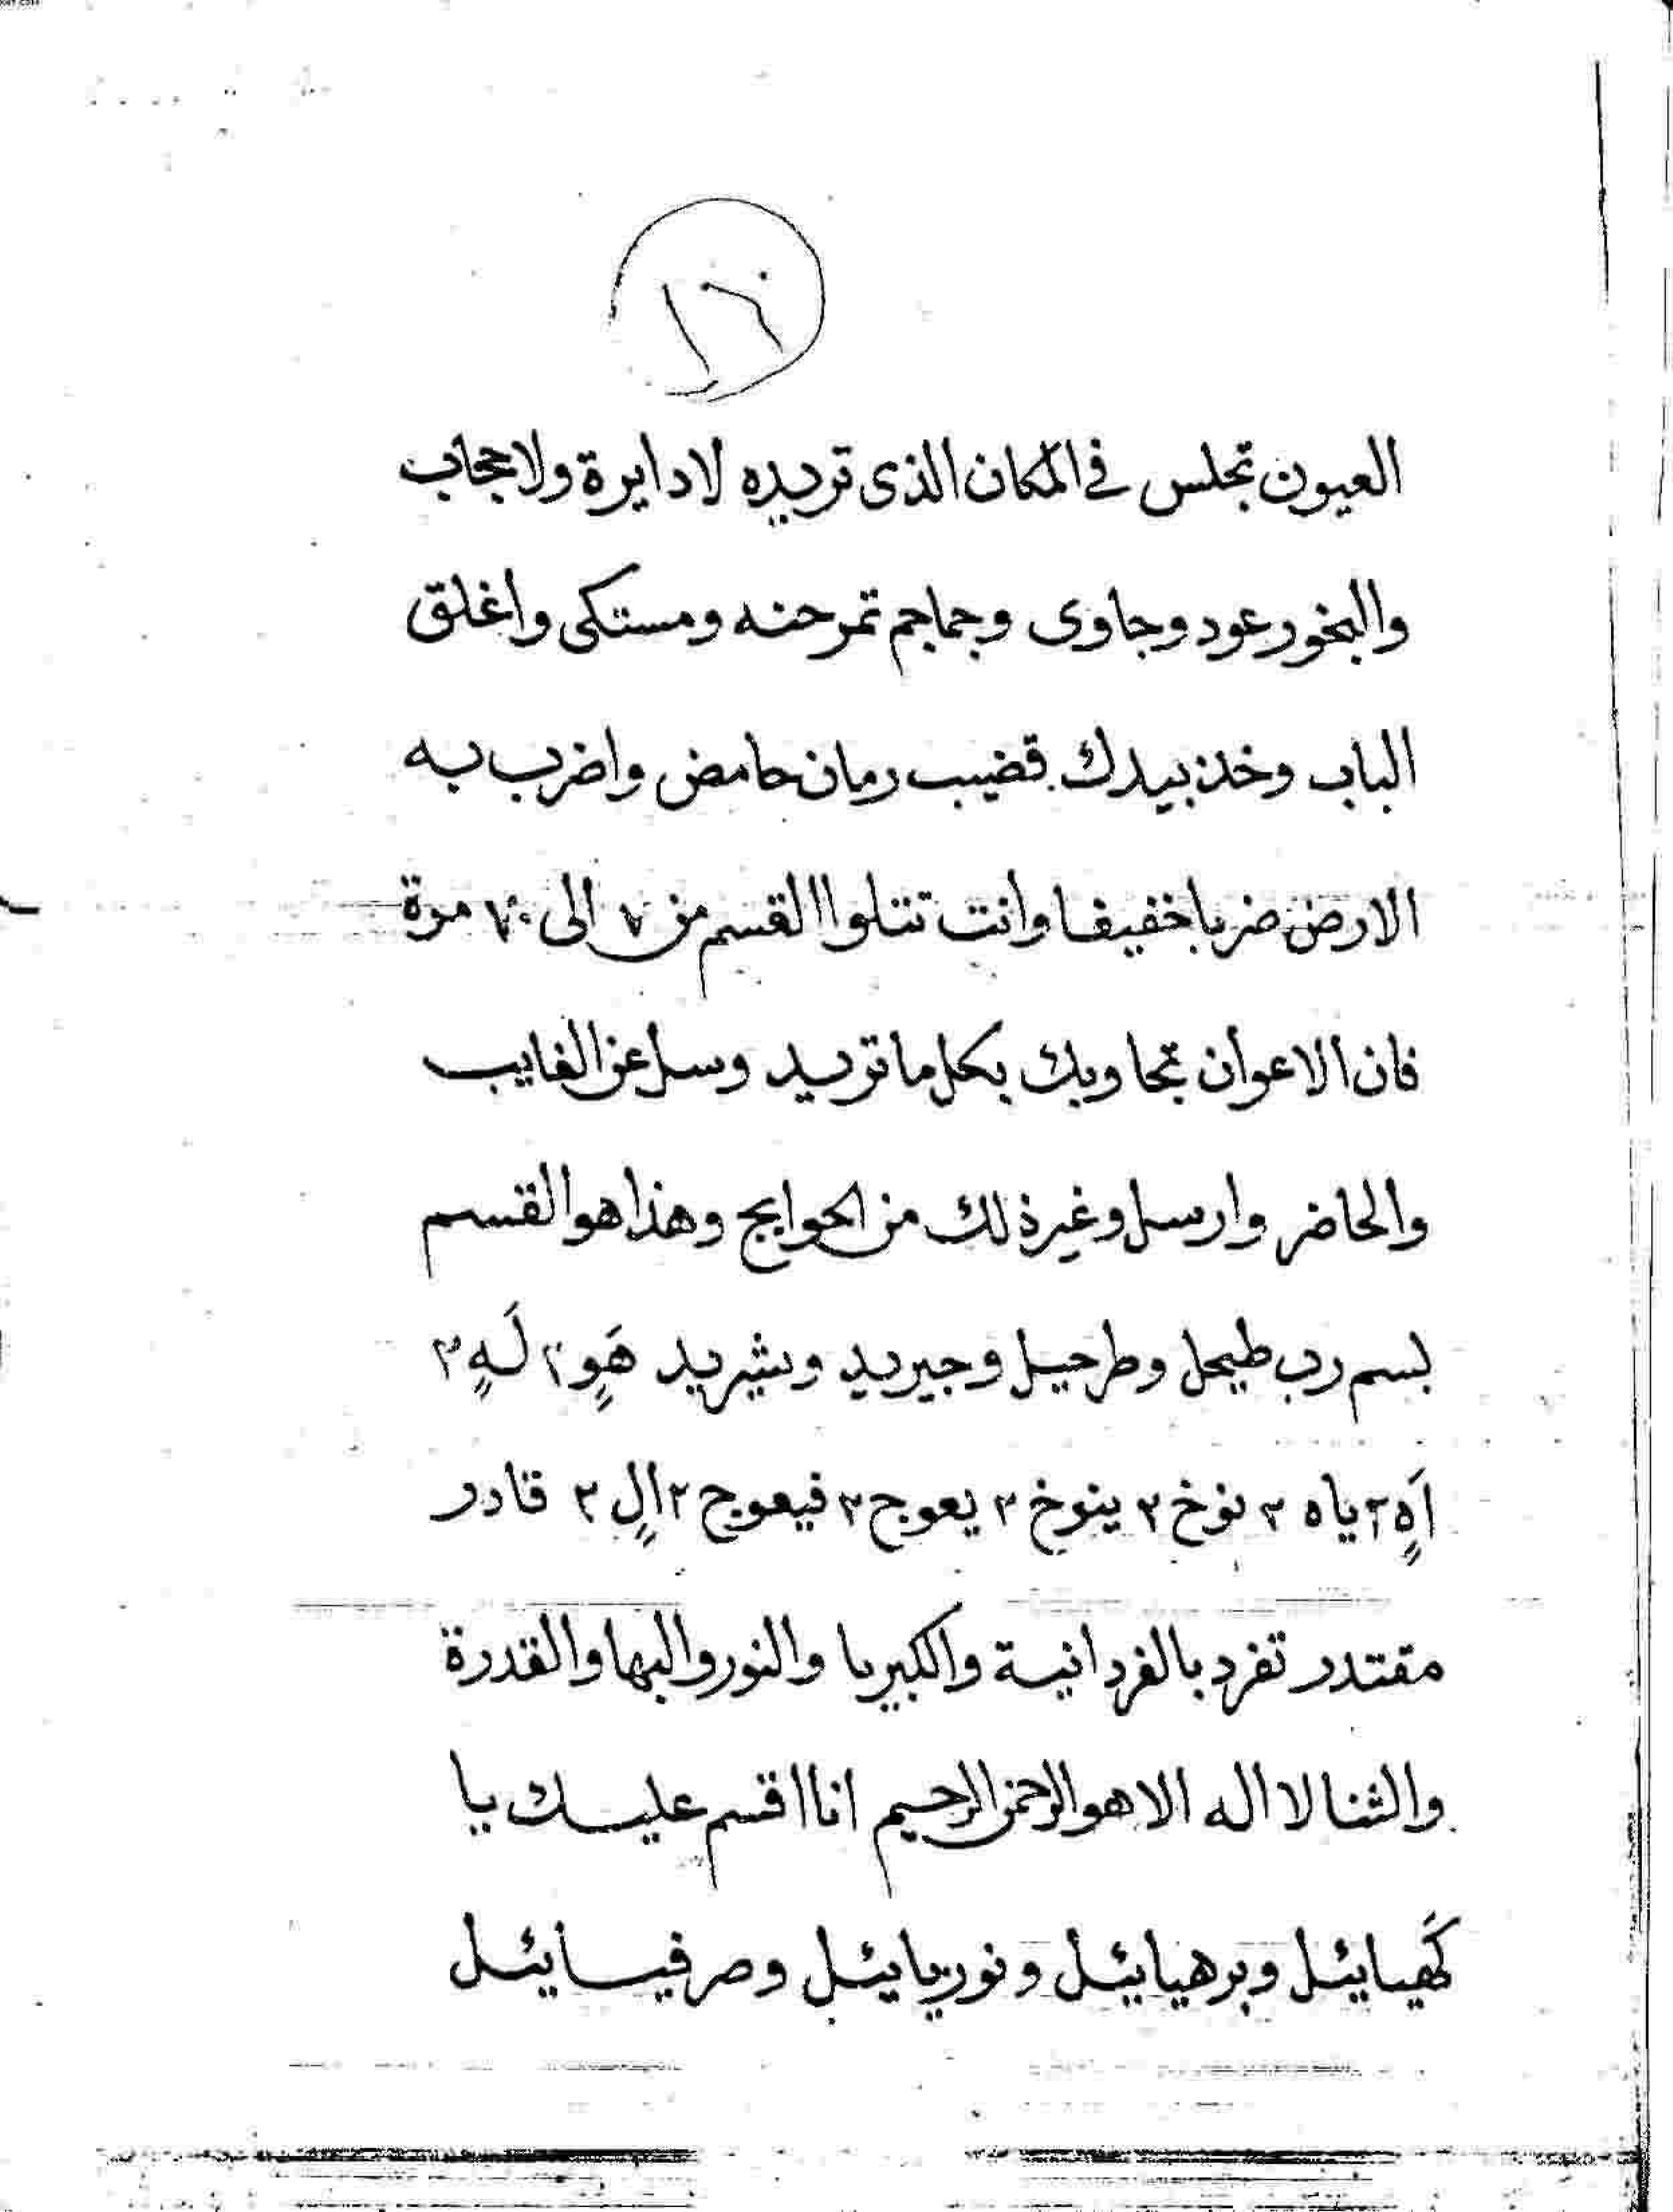 ١٦
العيون تجلس في المكان الذى تريده لا دايرة ولا حجاب
والبخور عود وجاوى وجماجم تمرحنه ومستكى واغلق
الباب وخذ بيدك قضيب رمان حامض واضرب به
الارض ضربا خفيفا وانت تتلوا القسم من ٧ الى ٧٠ مرة
فان الاعوان تجاوبك بكل ما تريد وسل عن الغايب
والحاضر وارسل وغير ذلك من الحوايج وهذا هو القسم
بسم رب طيحل وطرحيل وجيريد وبثيريد هَوٍ ٢ لَهٍ ٢
اَهٍ ٢ ياه ٢ نوخ ٢ ينوخ ٢ يعوج ٢ فيعوج ٢ الٍ ٢ قادر
مقتدر تفرد بالفردانية والكبريا والنور والبها والقدرة
والثنا لا اله الا هو الرحمن الرحيم انا اقسم عليك يا
كَهيائيل وبرهيائيل ونوريائيل وصرفيائيل